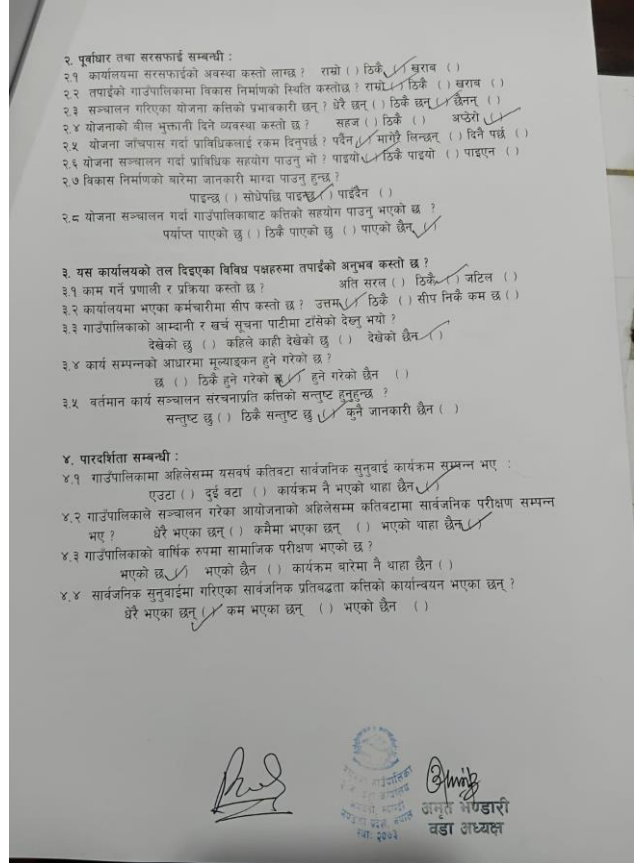 २. पूर्वाधार तथा सरसफाई सम्बन्धी :
२.१ कार्यालयमा सरसफाईको अवस्था कस्तो लाग्छ ? राम्रो ( ) ठिकै (✓) खराब ( )
२.२ तपाईको गाउँपालिकामा विकास निर्माणको स्थिति कस्तोछ ? राम्रो (✓) ठिकै ( ) खराब ( )
२.३ सञ्चालन गरिएका योजना कत्तिको प्रभावकारी छन् ? धेरै छन् ( ) ठिकै छन् (✓) छैनन् ( )
२.४ योजनाको बील भुक्तानी दिने व्यवस्था कस्तो छ ? सहज ( ) ठिकै ( ) अप्ठेरो (✓)
२.५ योजना जाँचपास गर्दा प्राविधिकलाई रकम दिनुपर्छ ? पर्दैन (✓) मागेरै लिन्छन् ( ) दिनै पर्छ ( )
२.६ योजना सञ्चालन गर्दा प्राविधिक सहयोग पाउनु भो ? पाइयो (✓) ठिकै पाइयो ( ) पाइएन ( )
२.७ विकास निर्माणको बारेमा जानकारी माग्दा पाउनु हुन्छ ?
पाइन्छ ( ) सोधेपछि पाइन्छ (✓) पाइदैन ( )
२.८ योजना सञ्चालन गर्दा गाउँपालिकाबाट कत्तिको सहयोग पाउनु भएको छ ?
पर्याप्त पाएको छु ( ) ठिकै पाएको छु ( ) पाएको छैन् (✓)
३. यस कार्यालयको तल दिइएका विविध पक्षहरुमा तपाईको अनुभव कस्तो छ ?
३.१ काम गर्ने प्रणाली र प्रक्रिया कस्तो छ ? अति सरल ( ) ठिकै (✓) जटिल ( )
३.२ कार्यालयमा भएका कर्मचारीमा सीप कस्तो छ ? उत्तम (✓) ठिकै ( ) सीप निकै कम छ ( )
३.३ गाउँपालिकाको आम्दानी र खर्च सूचना पाटीमा टाँसेको देख्नु भयो ?
देखेको छु ( ) कहिले काही देखेको छु ( ) देखेको छैन (✓)
३.४ कार्य सम्पन्नको आधारमा मूल्याङ्कन हुने गरेको छ ?
छ ( ) ठिकै हुने गरेको छ (✓) हुने गरेको छैन ( )
३.५ वर्तमान कार्य सञ्चालन संरचनाप्रति कत्तिको सन्तुष्ट हुनुहुन्छ ?
सन्तुष्ट छु ( ) ठिकै सन्तुष्ट छु (✓) कुनै जानकारी छैन ( )
४. पारदर्शिता सम्बन्धी :
४.१ गाउँपालिकामा अहिलेसम्म यसवर्ष कतिवटा सार्वजनिक सुनुवाई कार्यक्रम सम्पन्न भए :
एउटा ( ) दुई वटा ( ) कार्यक्रम नै भएको थाहा छैन (✓)
४.२ गाउँपालिकाले सञ्चालन गरेका आयोजनाको अहिलेसम्म कतिवटामा सार्वजनिक परीक्षण सम्पन्न
भए ? धेरै भएका छन् ( ) कमैमा भएका छन् ( ) भएको थाहा छैन् (✓)
४.३ गाउँपालिकाको वार्षिक रुपमा सामाजिक परीक्षण भएको छ ?
भएको छ (✓) भएको छैन ( ) कार्यक्रम बारेमा नै थाहा छैन ( )
४.४ सार्वजनिक सुनुवाईमा गरिएका सार्वजनिक प्रतिबद्धता कत्तिको कार्यान्वयन भएका छन् ?
धेरै भएका छन् (✓) कम भएका छन् ( ) भएको छैन ( )
अमृत भण्डारी
वडा अध्यक्ष